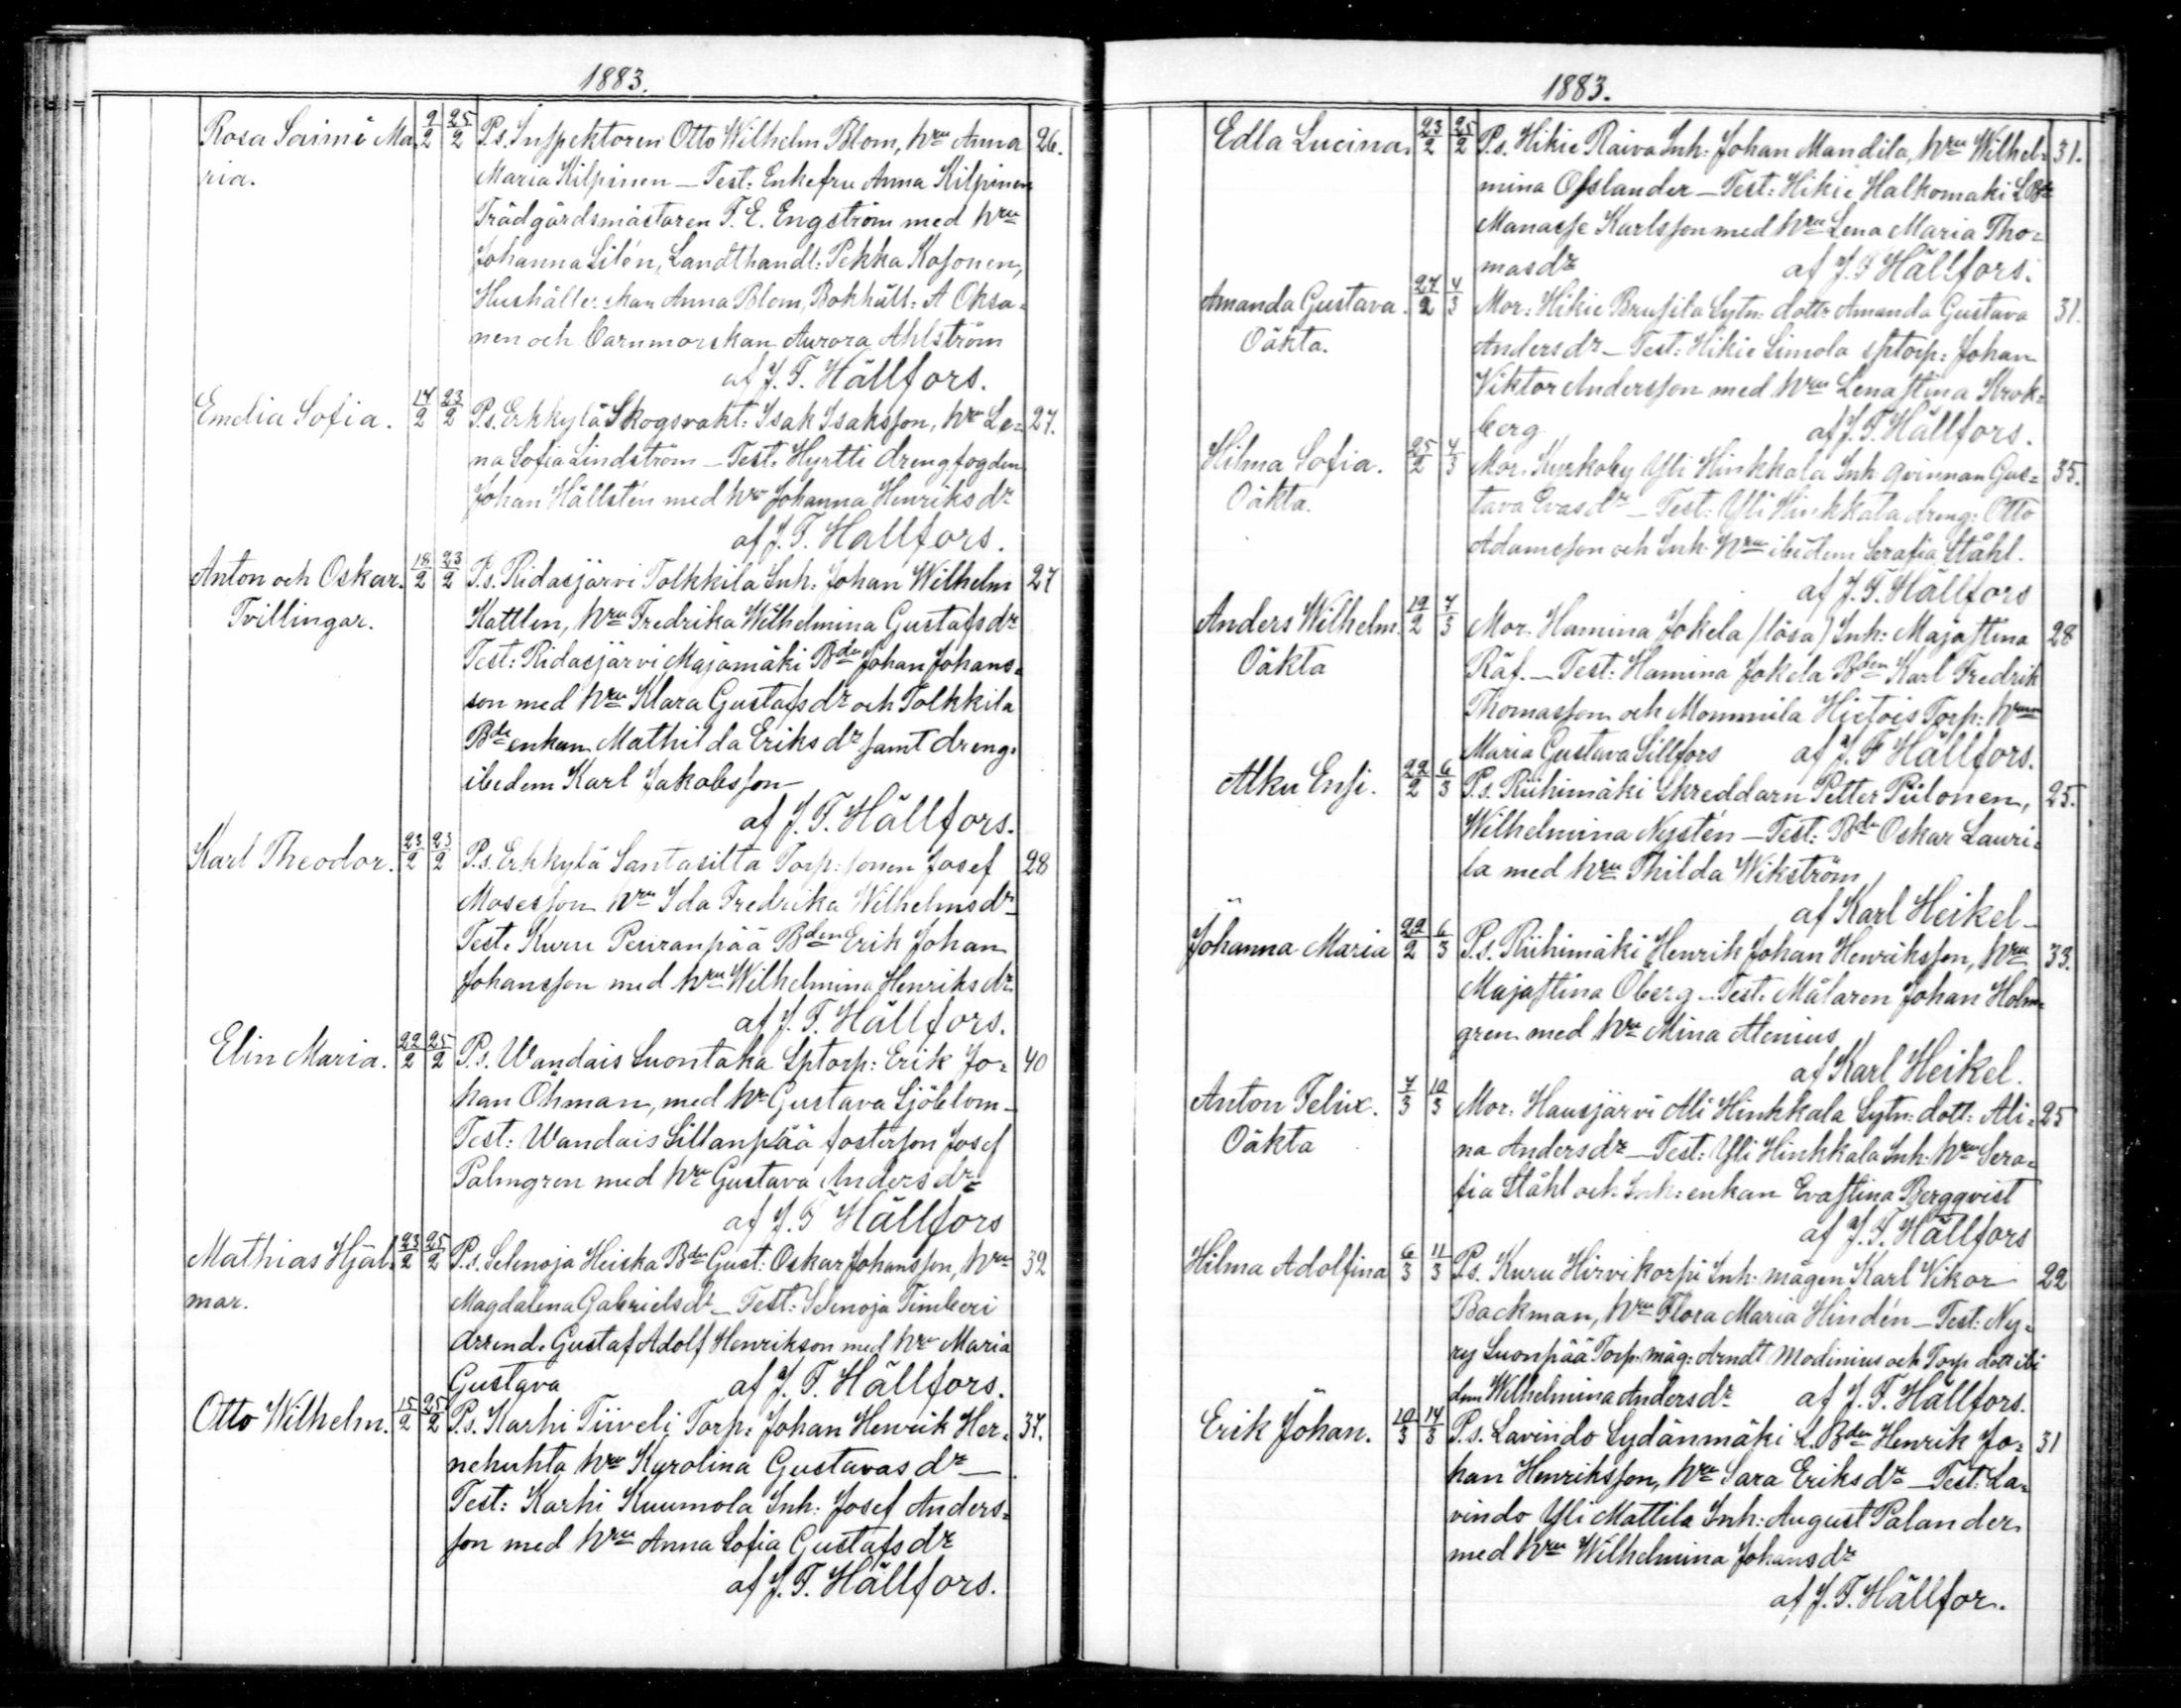 1883.
Rosa Saimi Ma 9/2 25/2 P.s. Inspektoren Otto Wilhelm Blom, hru Anna 26.
ria. Maria Kilpinen — Test: Enkefru Anna Kilpinen
Trädgårdsmästaren F. E. Engström med hru
Johanna Silén, Landthandl: Pekka Kosonen,
Hushållerskan Anna Blom, Bokhåll: A Oksa=
nen och barnmorskan Aurora Ahlström
af J. F. Hällfors.
Emelia Sofia. 14/2 23/2 P.s. Erkkylä Skogsvakt: Isak Isaksson, hru Le= 27.
na Sofia Lindström — Test. Hyrtti drengfogden
Johan Hällstén med hru Johanna Henriks dr
af J. F. Hallfors.
Anton och Oskar. 18/2 23/2 P.s. Ridasjärvi Tolkkila Inh: Johan Wilhelm 27
Tvillingar. Kattlen, hru Fredrika Wilhelmina Gustafs dr
Test: Ridasjärvi Majamäki Bdn Johan Johans=
son med hru Klara Gustafs dr och Tolkkila
Bde enkan Mathilda Eriks dr samt dreng.
ibidem Karl Jakobsson
af J. F. Hällfors.
Karl Theodor. 23/2 23/2 P.s. Erkkylä Santasilta Torp: sonen Josef 28
Mosesson hru Ida Fredrika Wilhelms dr
Test. Kuru Peuranpää Bden Erik Johan
Johansson med hru Wilhelmina Henriks dr
af J. F. Hällfors.
Elin Maria. 22/2 25/2 P.s. Wandais Luontaka Sptorp: Erik Jo= 40
han Öhman, med hru Gustava Sjöblom —
Test: Wandais Sillanpää fosterson Josef
Palmgren med hru Gustava Anders dr
af J. F Hällfors
Mathias Hjal= 23/2 25/2 P.s. Selenoja Heiska Bdn Gust: Oskar Johansson, hru 32
mar. Magdalena Gabriels dr — Test: Selenoja Timberi
Arrend. Gustaf Adolf Henrikson med hru Maria
Gustava af J. F. Hällfors.
Otto Wilhelm. 15/2 25/2 P.s. Karhi Tiiveli Torp: Johan Henrik Her= 37.
nehuhta hru Karolina Gustavas dr —
Test: Karhi Kuumola Inh: Josef Anders=
son med hru Anna Sofia Gustafs dr
af J. F. Hällfors.
1883.
Edla Lucina. 23/2 25/2 P.s. Hikie Raiva Inh: Johan Mandila, hru Wilhel= 31.
mina Osslander — Test: Hikie Halkomäki
Manasse Karlsson med hru Lena Maria Tho=
mas dr af J. F Hällfors.
Amanda Gustava. 27/2 4/3 Mor: Hikie Brusila Sytn: dottr Amanda Gustava 31.
Oäkta. Anders dr — Test: Hikie Simola Sptorp: Johan
Viktor Andersson med hru Lenastina Krok=
berg af J. F. Hällfors.
Hilma Sofia. 25/2 4/3 Mor. Kurkoby Yli Hinkkala Inh. qvinnan Gus= 35.
Oäkta. tava Evas dr — Test: Yli Hinkkala dreng: Otto
Adamsson och Inh. hru ibidem Serafia Ståhl.
af J. F. Hällfors
Anders Wilhelm. 19/2 7/3 Mor. Hamina Jokela (lösa) Inh: Majastina 28
Oäkta Räf. — Test: Hamina Jokela Bden Karl Fredrik
Thomasson och Mommila Hietois Torp: hrun
Maria Gustava Sillfors af J. F Hällfors.
Alku Ensi. 22/2 6/3 P.s. Riihimäki Skreddarn Petter Piilonen, 25.
Wilhelmina Nystén — Test: Bdn Oskar Lauri=
la med hru Thilda Wikström
af Karl Heikel —
Johanna Maria 22/2 6/3 P.s. Riihimäki Henrik Johan Henriksson, hru 33.
Majastina Öberg — Test. Målaren Johan Holm=
gren med hru Mina Alenius
af Karl Heikel.
Anton Felix. 7/3 10/3 Mor. Hausjärvi Ali Hinkkala Sytn: dott: Ali= 25
Oäkta na Anders dr — Test: Yli Hinkkala Inh. hru Sera=
fia Ståhl och Inh: enkan Evastina Bergqvist
af J. F. Hällfors
Hilma Adolfina 6/3 11/3 P.s. Kuru Hirvikorpi Inh: mågen Karl Vikor 22
Backman, hru Flora Maria Hindén — Test: Ny=
ry Luonpää Torp. måg: Arndt Modinius och Torp dott ibi
dem Wilhelmina Anders dr af J. F. Hällfors.
Erik Johan. 10/3 14/3 P.s. Lavindo Sydänmäki L. Bden Henrik Jo= 31
han Henriksson, hru Sara Eriks dr — Test: La=
vindo Yli Mattila Inh: August Palander
med hru Wilhelmina Johans dr
af J. F. Hällfor.